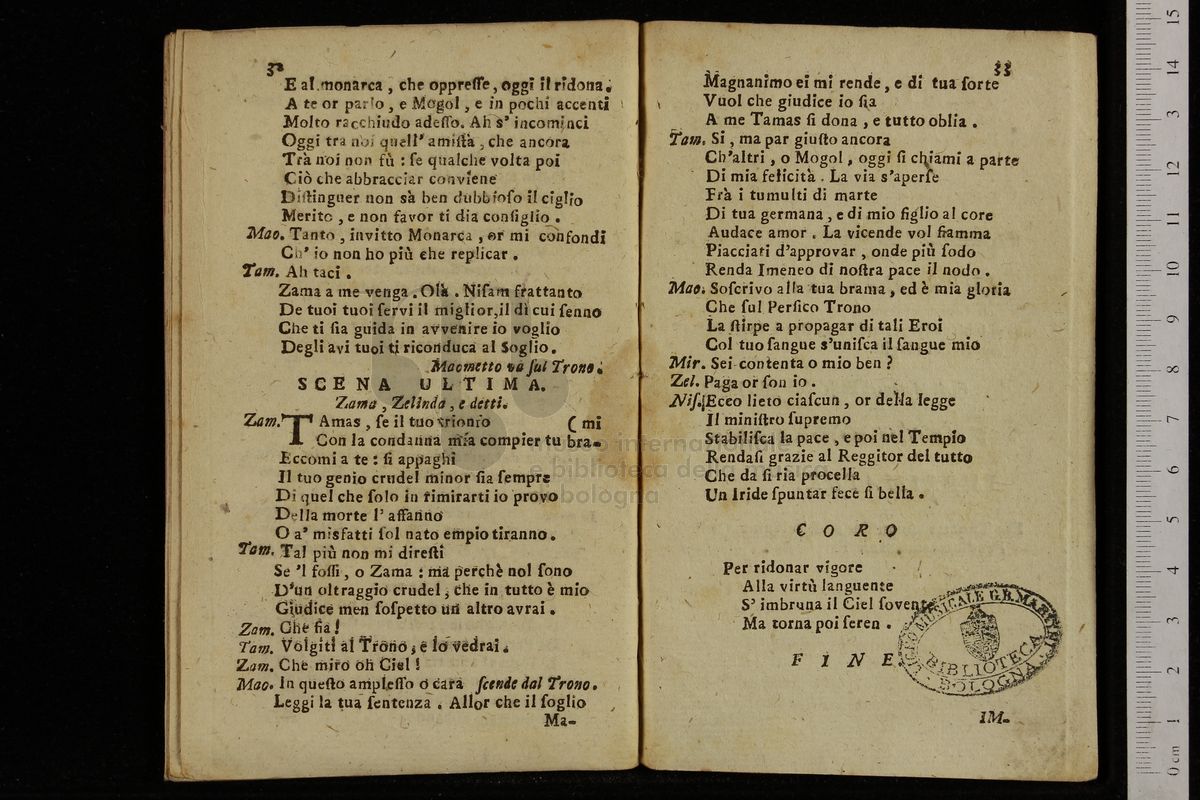 32
E al monarca , che oppreſſe, oggi il ridona.
A te or parlo , e Mogol , e in pochi accenti
Molto racchiudo adeſſo. Ah s' incominci
Oggi tra noi quell' amiſtà , che ancora
Trà noi non fù : ſe qualche volta poi
Ciò che abbracciar conviene
Diſtinguer non sà ben dubbioſo il ciglio
Merito , e non favor ti dia conſiglio .
Mao. Tanto , invitto Monarca , or mi confondi
Ch' io non ho più che replicar .
Tam. Ah taci .
Zama a me venga . Olà . Niſam frattanto
De tuoi tuoi ſervi il miglior,il di cui ſenno
Che ti ſia guida in avvenire io voglio
Degli avi tuoi ti riconduca al Soglio.
Maometto và ſul Trono.
SCENA ULTIMA.
Zama , Zelinda , e detti.
Zam. TAmas , ſe il tuo trionfo ( mi
Con la condanna mia compier tu bra-
Eccomi a te : ſi appaghi
Il tuo genio crudel minor ſia ſempre
Di quel che ſolo in rimirarti io provo
Della morte l' affanno
O a' misfatti ſol nato empio tiranno.
Tam. Tal più non mi direſti
Se 'l foſſi , o Zama : ma perchè nol ſono
D'un oltraggio crudel , che in tutto è mio
Giudice men ſoſpetto un altro avrai .
Zam. Che ſia !
Tam. Volgiti al Trono , e lo vedrai .
Zam. Che miro oh Ciel !
Mao. In queſto ampleſſo o cara ſcende dal Trono.
Leggi la tua ſentenza . Allor che il ſoglio
Ma-
33
Magnanimo ei mi rende , e di tua ſorte
Vuol che giudice io ſia
A me Tamas ſi dona , e tutto oblia .
Tam. Si , ma par giuſto ancora
Ch'altri , o Mogol , oggi ſi chiami a parte
Di mia felicità . La via s'aperſe
Frà i tumulti di marte
Di tua germana , e di mio figlio al core
Audace amor . La vicende vol fiamma
Piacciati d'approvar , onde più ſodo
Renda Imeneo di noſtra pace il nodo .
Mao. Soſcrivo alla tua brama , ed è mia gloria
Che ſul Perſico Trono
La ſtirpe a propagar di tali Eroi
Col tuo ſangue s'uniſca il ſangue mio
Mir. Sei contenta o mio ben ?
Zel. Paga or ſon io .
Niſ. Ecco lieto ciaſcun , or della legge
Il miniſtro ſupremo
Stabiliſca la pace , e poi nel Tempio
Rendaſi grazie al Reggitor del tutto
Che da ſi ria procella
Un Iride ſpuntar fece ſi bella .
CORO
Per ridonar vigore
Alla virtù languente
S' imbruna il Ciel ſovente
Ma torna poi ſeren .
FINE
LICEO MUSICALE G.B. MARTINI
BIBLIOTECA
BOLOGNA
IM-
museo internazionale
e biblioteca della musica
bologna
0 cm 1 2 3 4 5 6 7 8 9 10 11 12 13 14 15